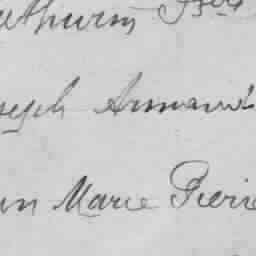 athurin
seph Armand
an Marie Pierre